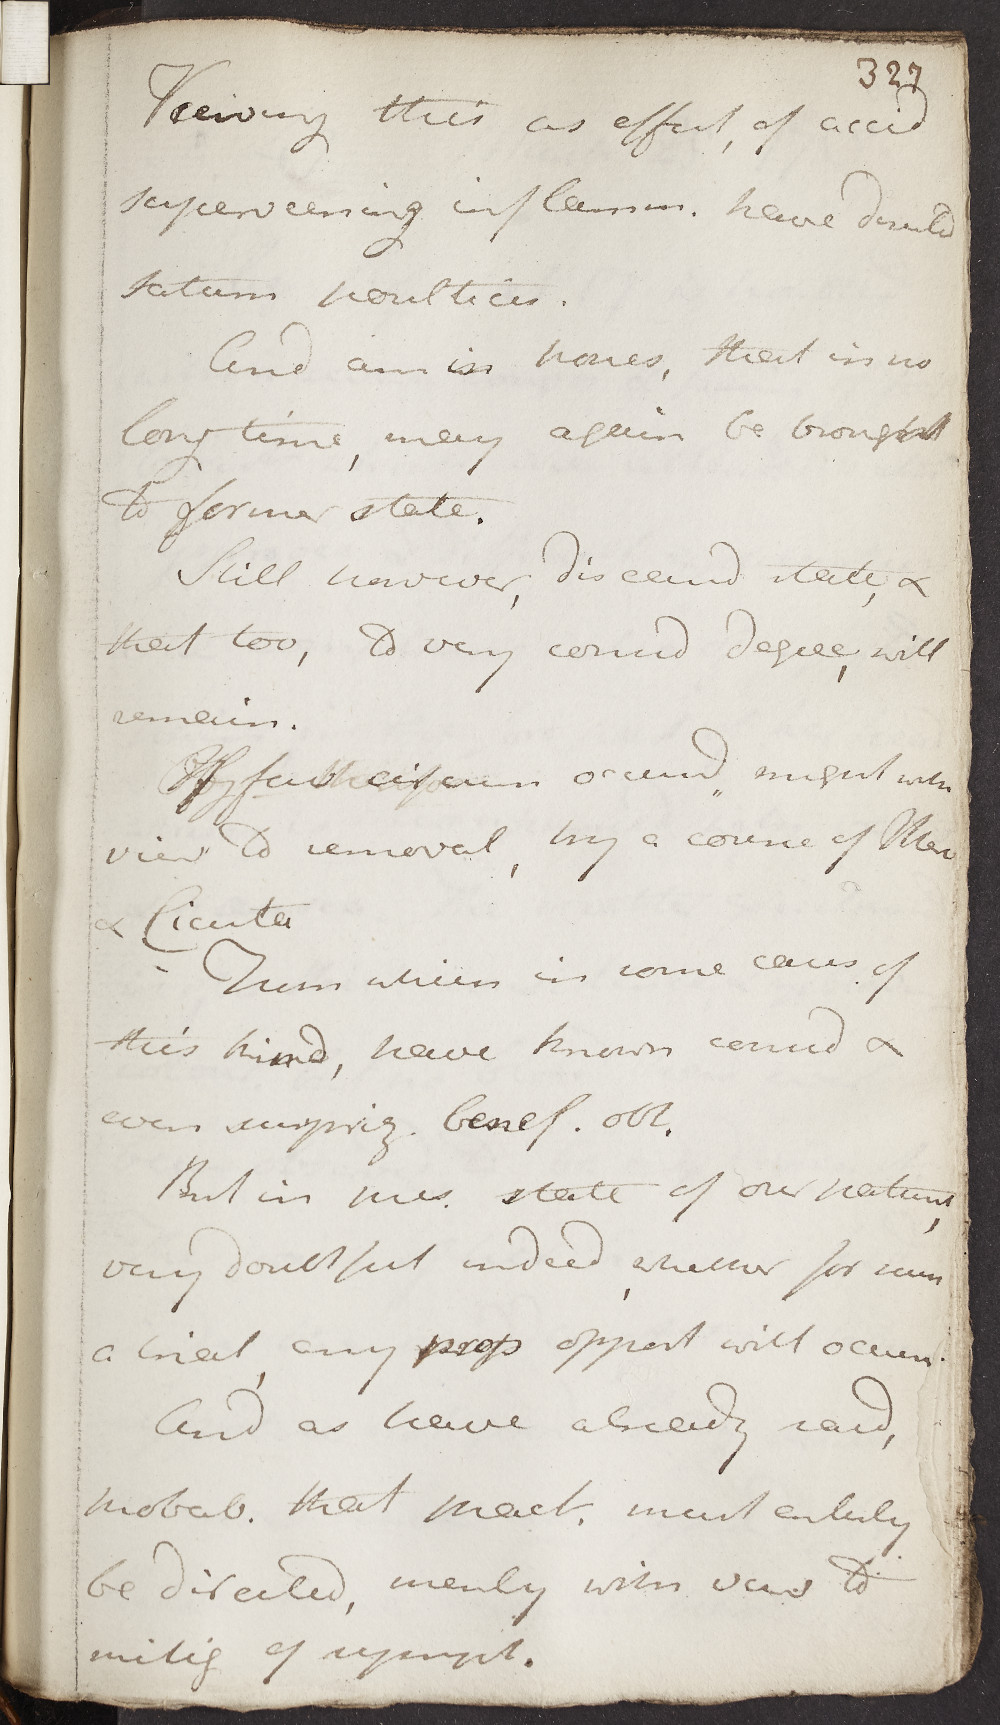 327
Veiwing this as effect, of accid
superveening inflamm. have directed
saturn poultices.
And am in hopes, that in no
long time, may again be brought
to former state.
Still however, diseased state, &
that too, to very consid degree, will
remain.
If fav circum occurred, might with
view to removal, try a course of Merc
& Cicuta
From which in some cases of
this kind, have known consid &
even surpriz. benef. obt.
But in pres. state of our patient,
very doubtful indeed, whether for such
a trial, any prop opport will occurr.
And as have already said,
probab. that pract. must entirely
be directed, merely with view to
mitig of sympt.